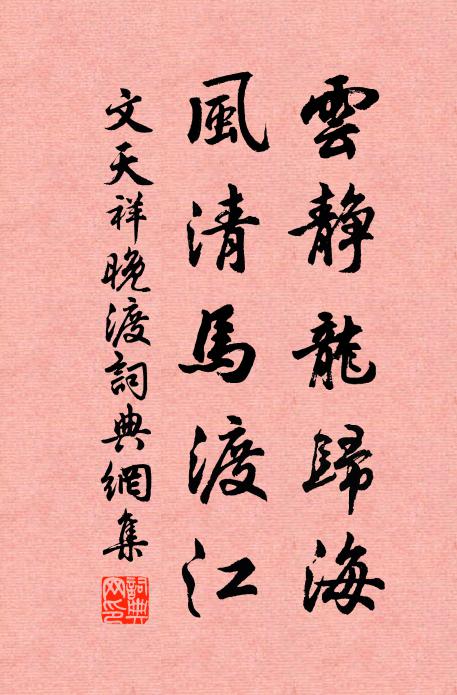 雲靜龍歸海
風清馬渡江
文天祥晚渡詞典網集
詞典網印